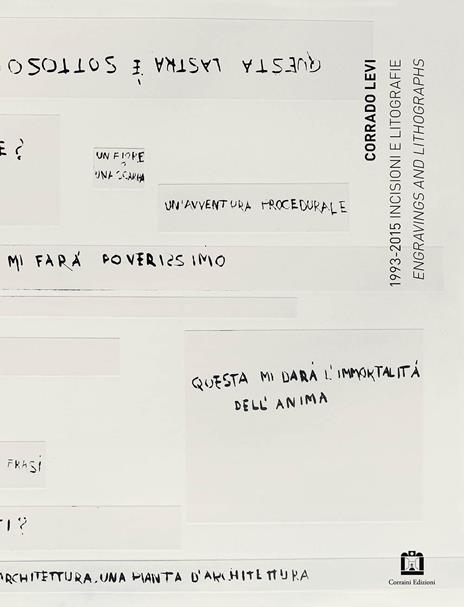 QUESTA LASTRA È SOTTOSO
CORRADO LEVI
1993-2015 INCISIONI E LITOGRAFIE
ENGRAVINGS AND LITHOGRAPHS
E?
UN FIORE
O
UNA SCARPA
UN'AVVENTURA PROCEDURALE
MI FARÁ POVERISSIMO
QUESTA MI DARÁ L'IMMORTALITÁ
DELL'ANIMA
FRASI
TI?
ARCHITETTURA. UNA PIANTA D'ARCHITETTURA
Corraini Edizioni